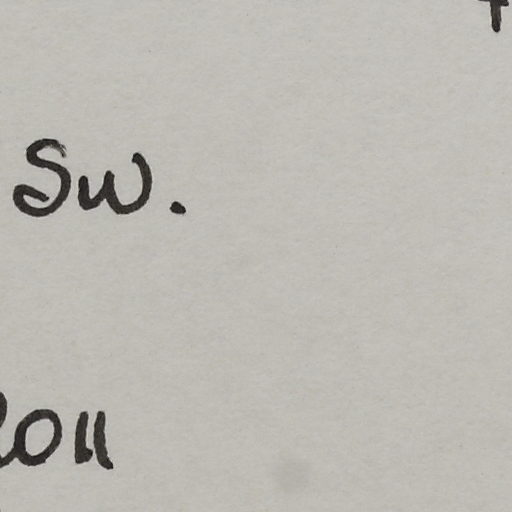 Sw.
2011